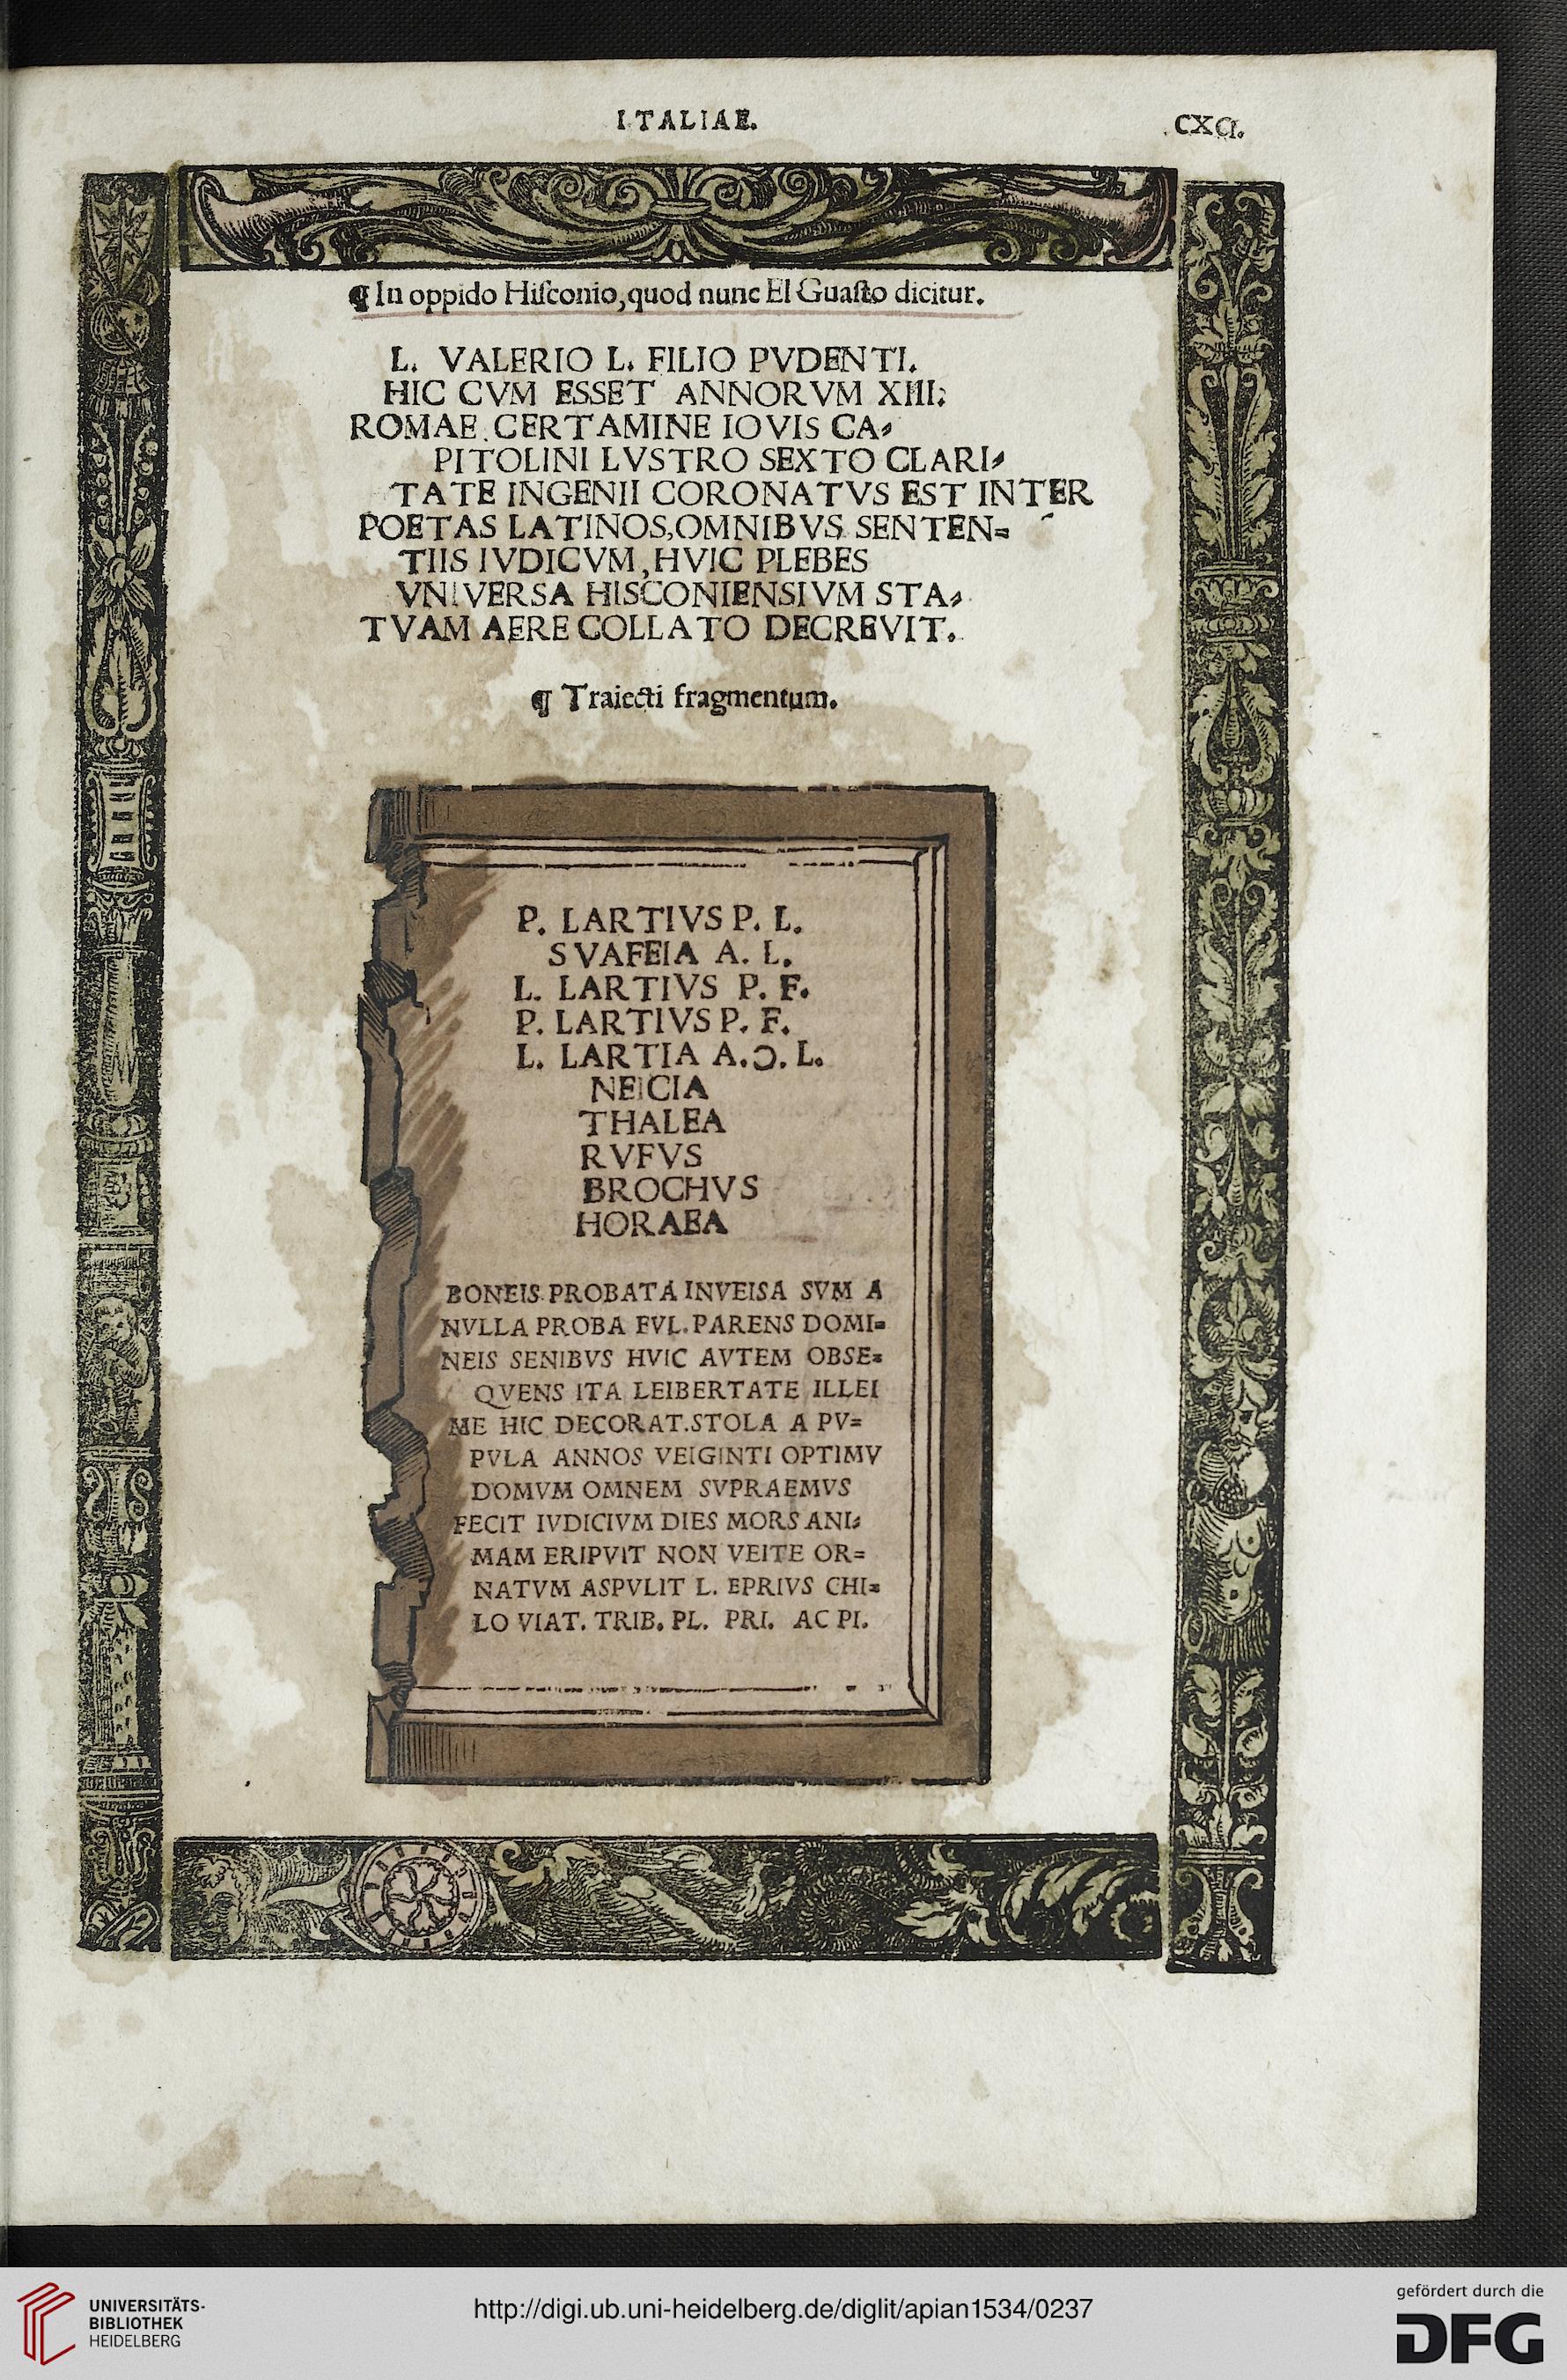 ITALIAE. CXCI.
¶ In oppido Hiſconio, quod nunc El Guaſto dicitur.
L. VALERIO L. FILIO PVDENTI.
HIC CVM ESSET ANNORVM XIII.
ROMAE CERTAMINE IOVIS CA⸗
PITOLINI LVSTRO SEXTO CLARI⸗
TATE INGENII CORONATVS EST INTER
POETAS LATINOS, OMNIBVS SENTEN⸗
TIIS IVDICVM, HVIC PLEBES
VNIVERSA HISCONIENSIVM STA⸗
TVAM AERE COLLATO DECREVIT.
¶ Traiecti fragmentum.
P. LARTIVS P. L.
SVAFEIA A. L.
L. LARTIVS P. F.
P. LARTIVS P. F.
L. LARTIA A. Ɔ. L.
NEICIA
THALEA
RVFVS
BROCHVS
HORAEA
BONEIS PROBATA INVEISA SVM A
NVLLA PROBA FVL. PARENS DOMI⸗
NEIS SENIBVS HVIC AVTEM OBSE⸗
QVENS ITA LEIBERTATE ILLEI
ME HIC DECORAT. STOLA A PV⸗
PVLA ANNOS VEIGINTI OPTIMV
DOMVM OMNEM SVPRAEMVS
FECIT IVDICIVM DIES MORS ANI⸗
MAM ERIPVIT NON VEITE OR⸗
NATVM ASPVLIT L. EPRIVS CHI⸗
LO VIAT. TRIB. PL. PRI. AC PI.
UNIVERSITÄTS-
BIBLIOTHEK
HEIDELBERG
http://digi.ub.uni-heidelberg.de/diglit/apian1534/0237
gefördert durch die
DFG